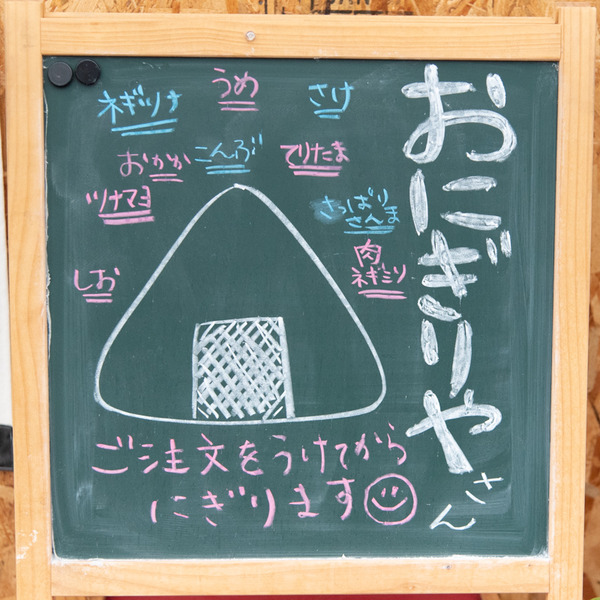 おにぎりやさん
ネギツナ
うめ
さけ
おかか
こんぶ
てりたま
ツナマヨ
さっぱり
さんま
肉
ネギミソ
しお
ご注文をうけてから
にぎります